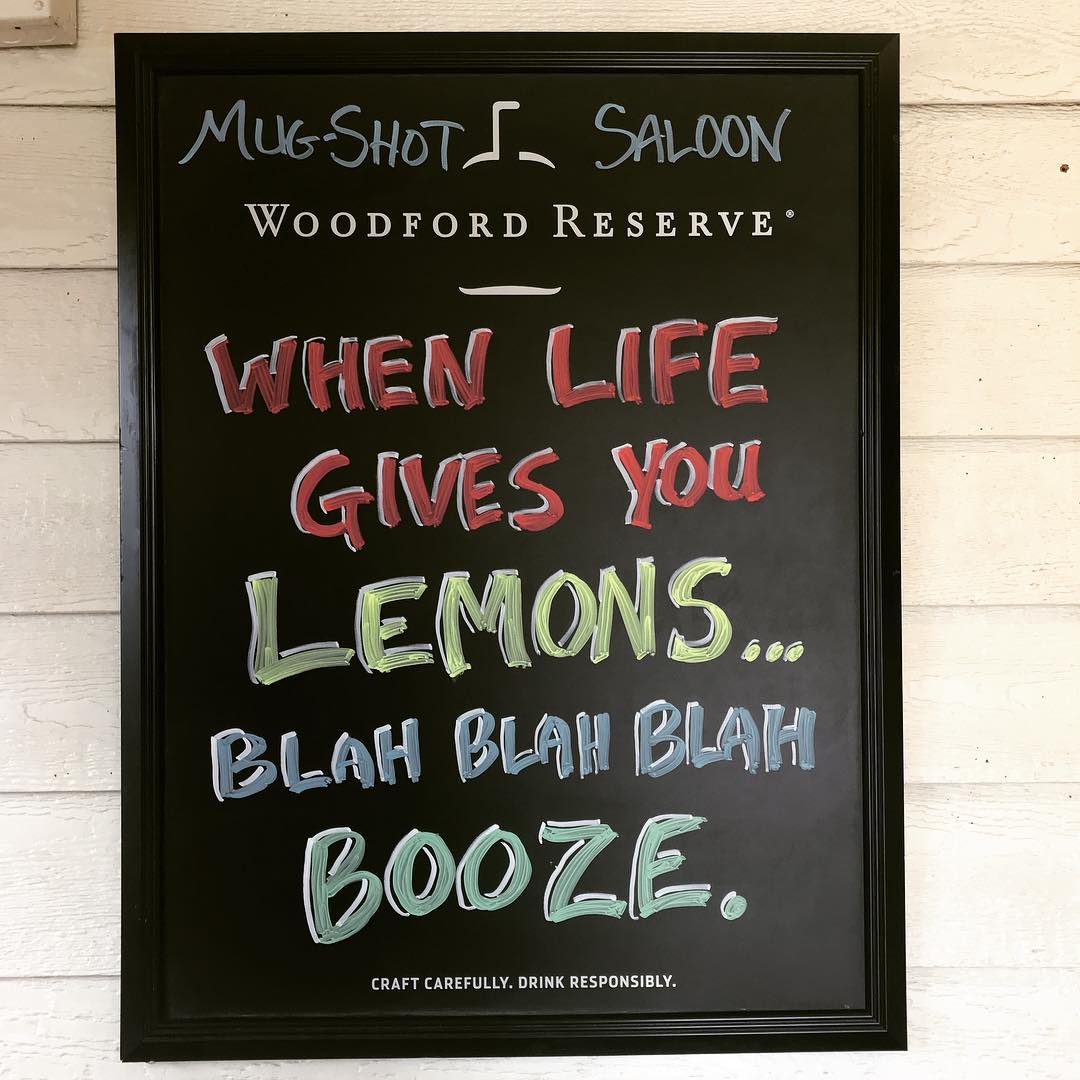 MUG-SHOT SALOON
WOODFORD RESERVE®
WHEN LIFE
GIVES YOU
LEMONS...
BLAH BLAH BLAH
BOOZE.
CRAFT CAREFULLY. DRINK RESPONSIBLY.